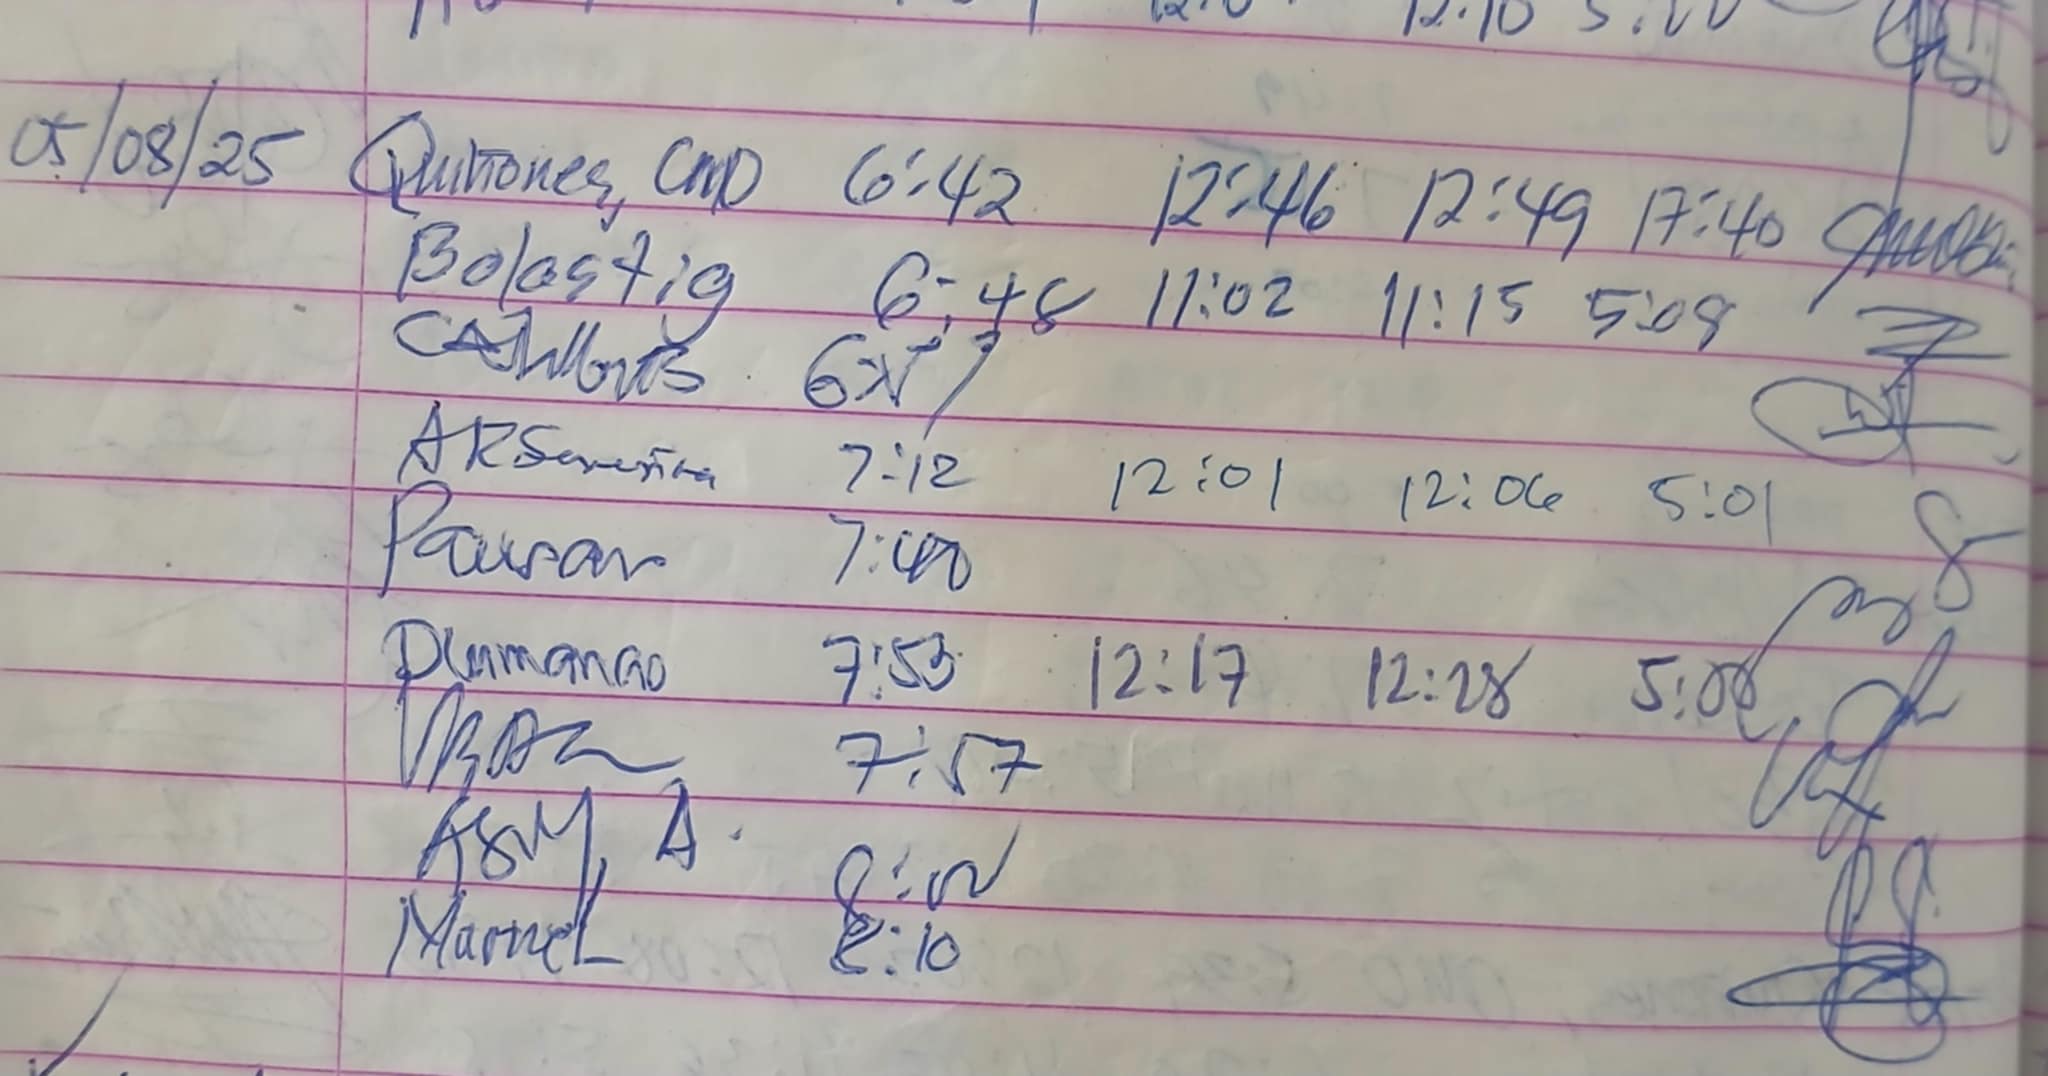 12:10 5:00
05/08/25 Quiñones, CMD 6:42 12:46 12:49 17:40
Bolastig 6:48 11:02 11:15 5:08
6:57
AR Severina 7:12 12:01 12:06 5:01
Pausan 7:40
Dumanao 7:53 12:17 12:28 5:08
7:57
8:00
Marvel 8:10